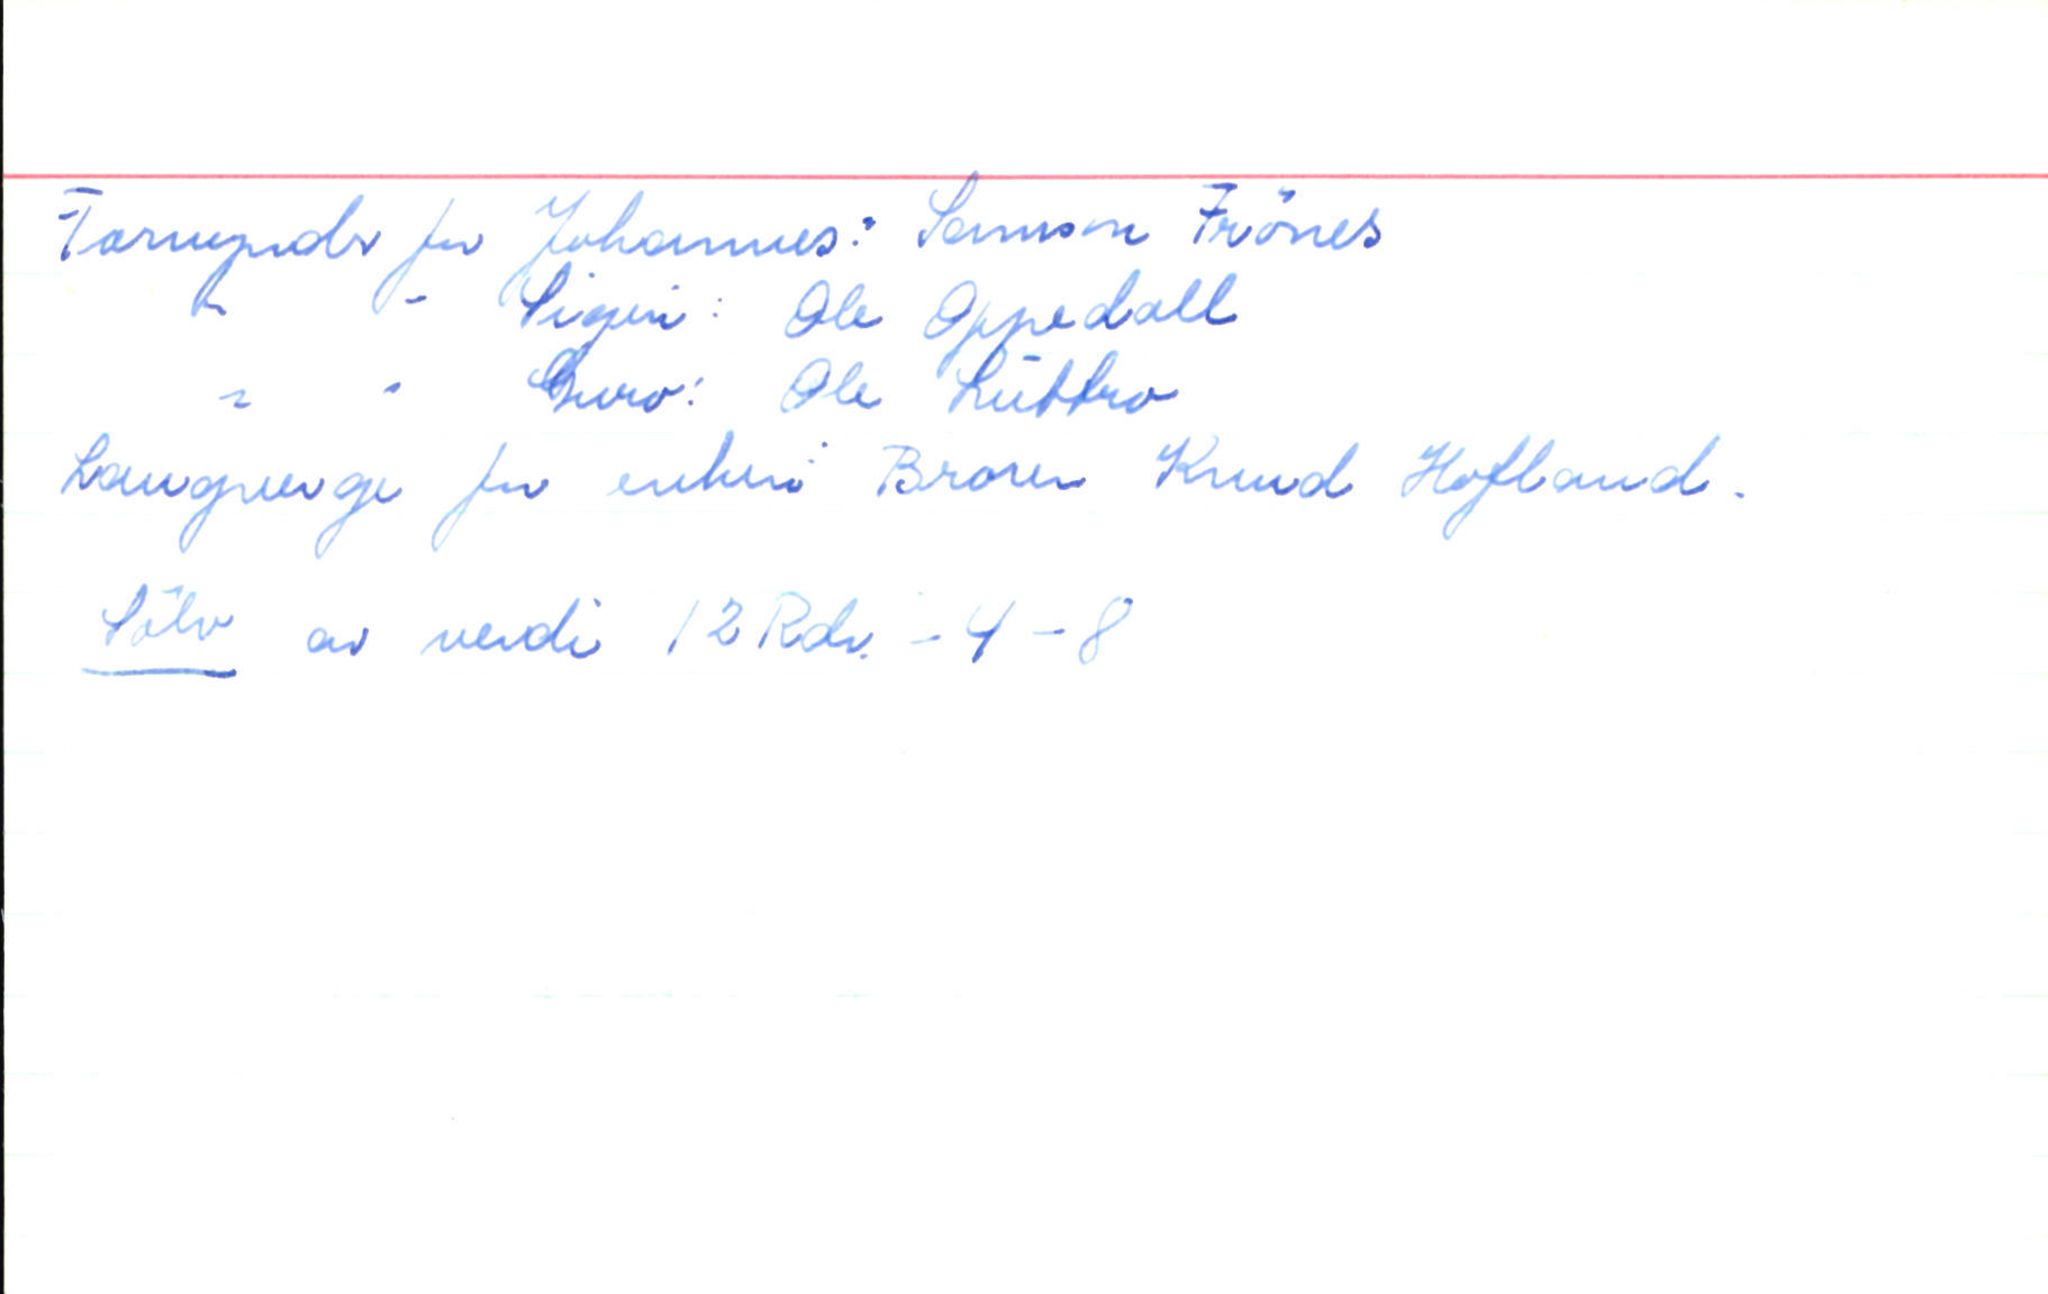 Formynder for Johannes: Samson Frönes
" " Sigri: Ole Oppedall
" " Guro: Ole Lüttro
Laugverge for enken: Broren Knud Hofland.
Sölv av verdi 12 Rdr. - 4 - 8